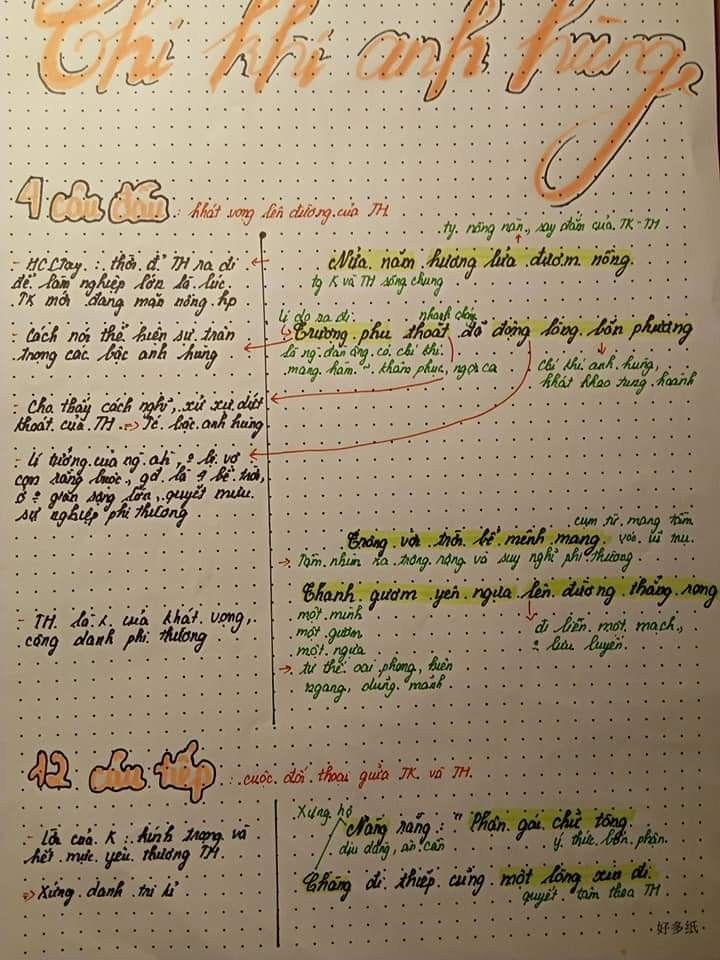 Chí khí anh hùng
4 câu đầu : khát vọng lên đường của TH
ty. nồng nàn, say đắm của TK-TH
- HCCTay : thời đ' TH ra đi
để làm nghiệp lớn là lúc
TK mới đang mặn nồng hp
Nửa năm hương lửa đương nồng
ty K và TH sống chung
lí do ra đi
nhanh chóng
- Cách nói thể hiện sự trân
trọng các bậc anh hùng
Trượng phu thoắt đã động lòng bốn phương
là ng. đàn ông có chí khí
mang hàm ~ khâm phục, ngợi ca
chí khí anh hùng,
khát khao tung hoành
- Cho thấy cách nghĩ, xử sự dứt
khoát của TH => TC bậc anh hùng
- Lí tưởng của ng. ah, ? bị vợ
con ràng buộc, gđ là 4 bề trời,
ở ? gian rộng lớn, quyết mưu
sự nghiệp phi thường
cụm từ mang tầm
vóc vũ trụ
Trông vời trời bể mênh mang
-> Tầm nhìn xa trông rộng và suy nghĩ phi thường
Thanh gươm yên ngựa lên đường thẳng rong
- TH là K của khát vọng,
công danh phi thường
một mình
một gươm
một ngựa
-> tư thế oai phong, hiên
ngang, dũng mãnh
đi liền một mạch,
? lưu luyến
12 câu tiếp : cuộc đối thoại giữa TK và TH
Xưng hô
- Lời của K : kính trọng và
hết mực yêu thương TH
=> Xứng danh tri kỉ
Nàng rằng : " Phận gái chữ tòng
dịu dàng, ân cần
ý thức bổn phận
Chàng đi thiếp cũng một lòng xin đi
quyết tâm theo TH
好多纸